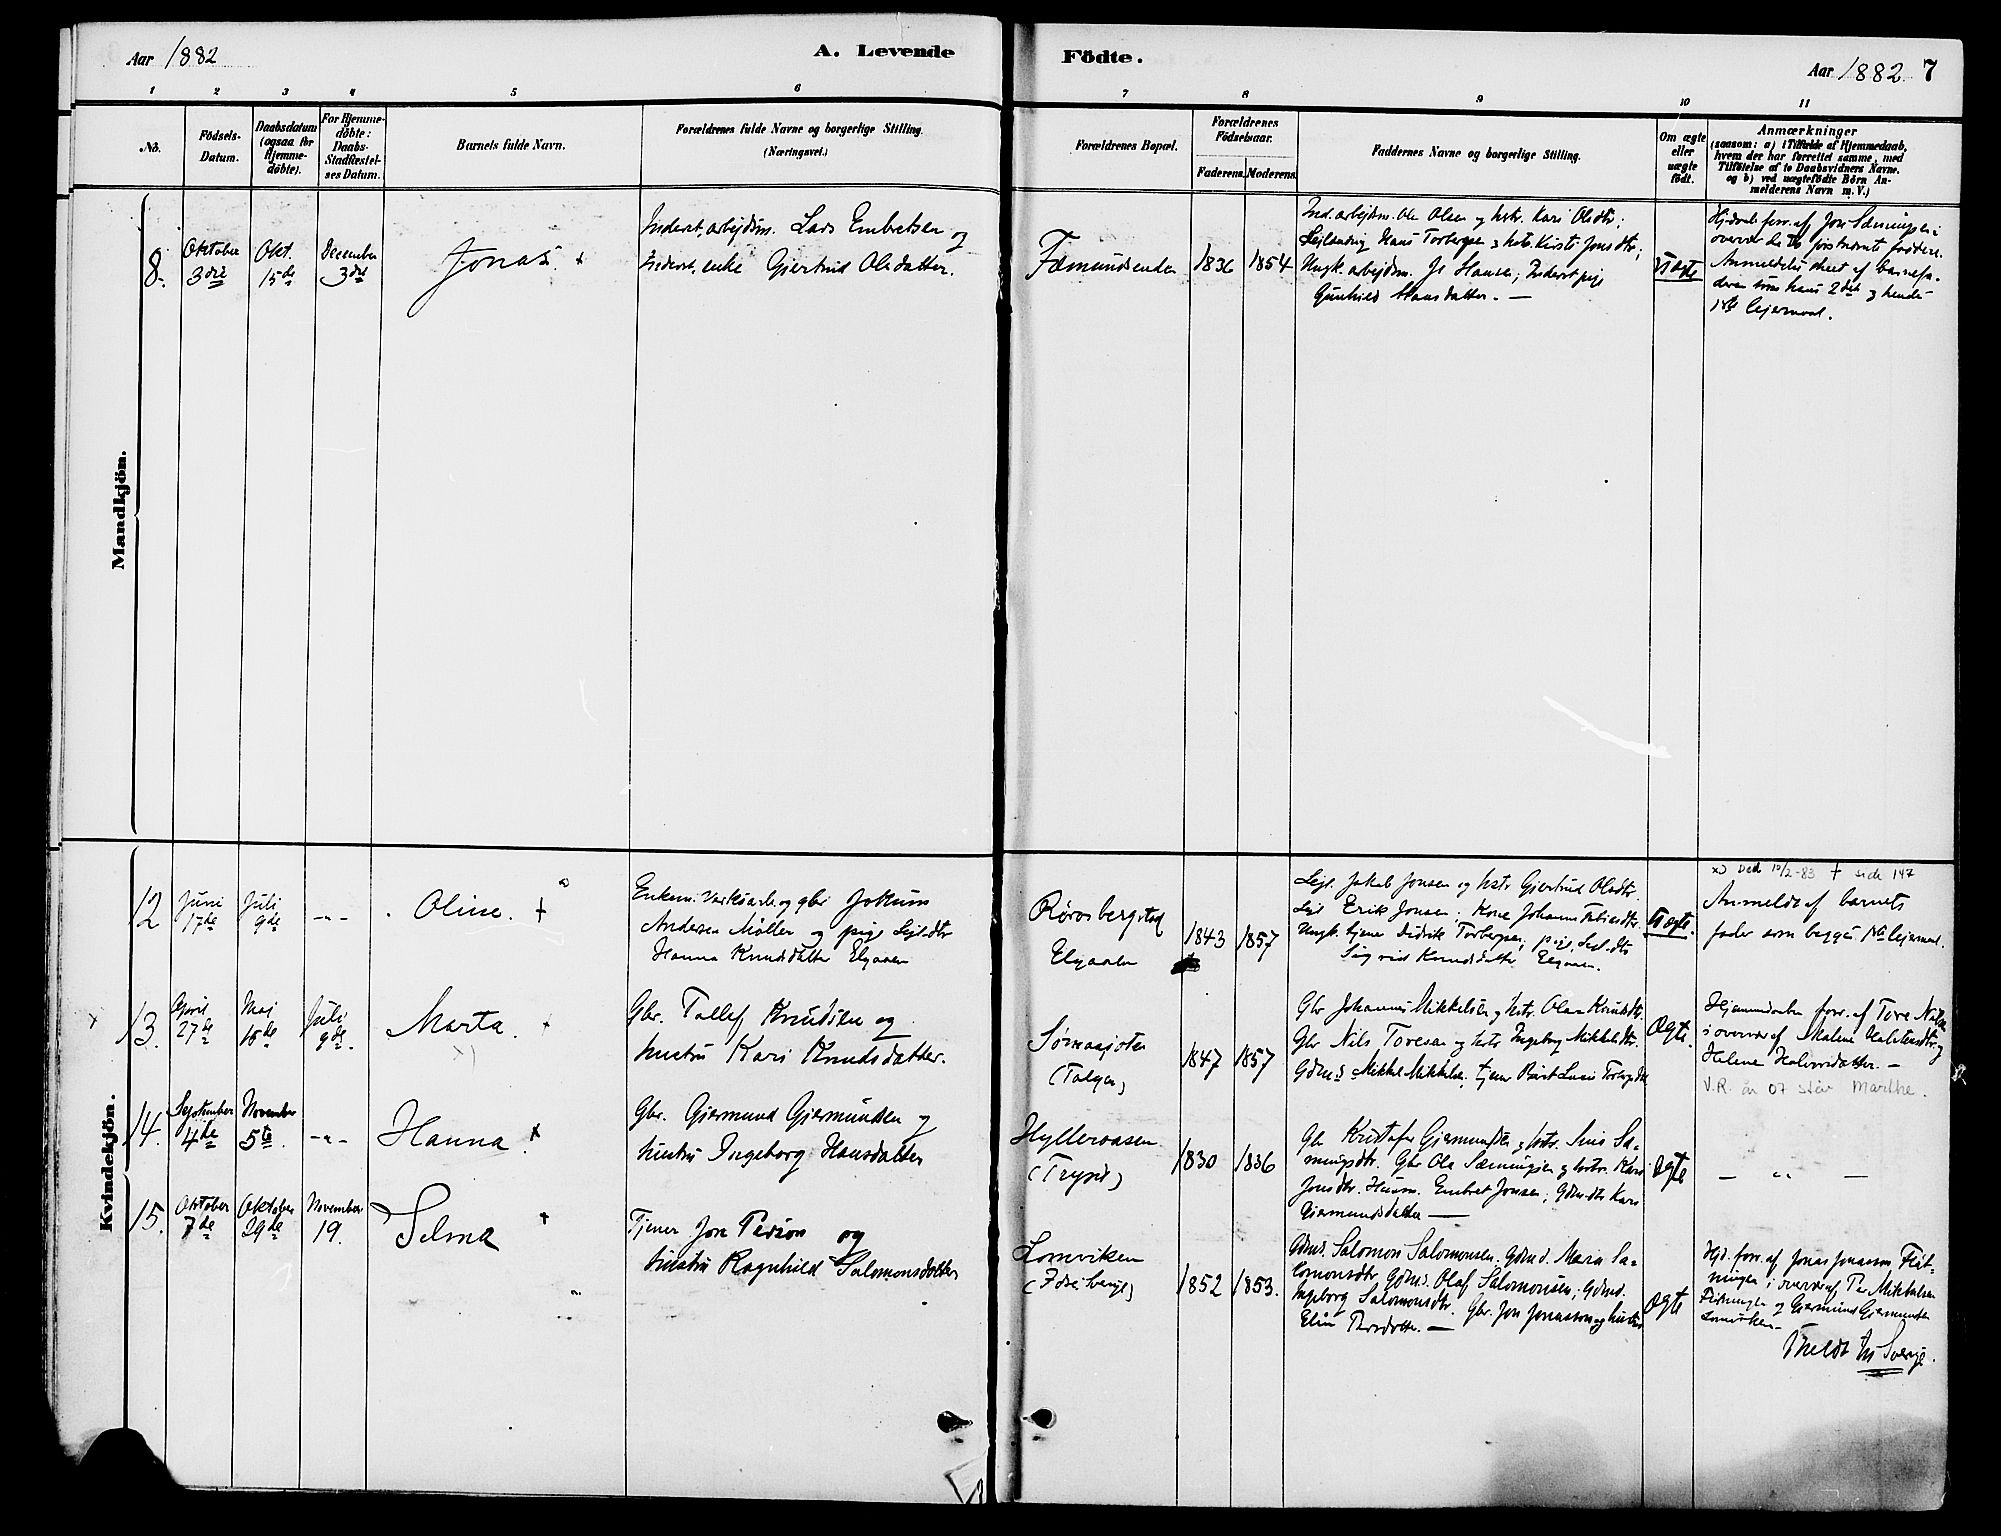 Aar 1882
A. Levende
Födte.
Aar 1882. 7
1 2 3 4 5 6 7 8 9 10 11
No.
Födsels-
Datum.
Daabsdatum
(ogsaa for
Hjemme-
döbte).
For Hjemme-
döbte:
Daabs-
Stadfæstel-
ses Datum.
Barnets fulde Navn.
Forældrenes fulde Navne og borgerlige Stilling.
(Næringsvei.)
Forældrenes Bopæl.
Forældrenes
Födselsaar.
Faderens. Moderens.
Faddernes Navne og borgerlige Stilling.
Om ægte
eller
uægte
födt.
Anmærkninger
(saasom: a) i Tilfælde af Hjemmedaab,
hvem der har forrettet samme, med
Tilföielse af to Daabsvidners Navne.
og b) ved uægtefödte Börn An-
melderens Navn m. V.)
Mandkjön.
8.
Oktober
3die
Okt.
15de
December
3die
Jonas.
Inderst, arbejdsm. Lars Embretsen og
Inderst, enke Gjertrud Olsdatter.
Fæmundsenden
1836 1854
Ind. arbejdsm. Ole Olsen og hstr. Kari Olsdtr;
Hans Torbergsen & hstr. Kirsti Jonsdtr;
Ungk. arbejdsm. Hansen; Inderst pige
Gunhild Hansdatter. —
Uægte
forr. af Jon Sæmingsen i
Anmeldelse skeet af barnefa-
deren som hans 2det og hendes
1ste lejermaal.
Kvindekjön.
12
Juni
17de
Juli
9de
-"-
Oline. +
Enkem. og gbr Jokum
Andersen Møller og pige
Hanna Knudsdatter Elgaaen
Røros bergstad
Elgaaen
1843 1857
Jakob Jonsen og hstr Gjertrud Olsdtr.
Erik Jonsen; Kone Johanna
Ungk. tjener Didrik Torbergsen; pige
Sigrid Knudsdatter Elgaaen.
Uægte.
x) Død 10/2-83 + side 147
Anmeldt af barnets
fader som begges 1ste lejermaal.
13.
April
27de
Maj
18de
Juli
9de.
Marta. +
x)
Gbr. Tollef Knudsen og
hustru Kari Knudsdatter.
(Tolgen)
1847 1857
Gbr Johannes Mikkelsen & hstr. Ola Knudsdtr.
Gbr Nils Toresen og hstr Ingeborg Mikkelsdtr.
Gdms Mikkel Mikkelsen; tjener
Ægte.
Hjemmedaaben forr. af Tore Nilsen
i overvær af Malene Halstensdtr. og
Helene Halvorsdatter. —
V.R. år 07 står Marthe.
14.
September
4de
November
5te.
-"-
Hanna. +
Gbr. Gjermund Gjermundsen og
hustru Ingeborg Hansdatter
Hylleraasen
(Trysil)
1830 1836
Gbr Kristofer Gjermundsen & hstr. Siris Sæ-
mingsdtr. Gbr Ola Sæmingsen og hstr. Kari
Jonsdtr. Husm. Embret Jonsen; Gdm.dtr Kari
Gjermundsdatter —
Ægte
— " —
15.
Oktober
7de
Oktober
29de
November
19.
Selma +
Tjener Jon Persson og
hustru Ragnhild Salomonsdatter
Lomviken
(Idre Sverige)
1852 1853.
Gdms. Salomon Salomonsen. Gdmd. Mari Sa-
lomonsdtr Gdms. Olaf Salomonsen; Gdmd.
Ingeborg Salomonsdtr. Gbr. Jon Jonasson og hustru
Elin Persdatter. —
Ægte
Hjd. forr. af Jonas Jonasson Fløt-
ningen i overvær af Per Mikkelsen
Fløtningen og Gjermund Gjermundsen
Lomviken—
Meldt til Sverige.